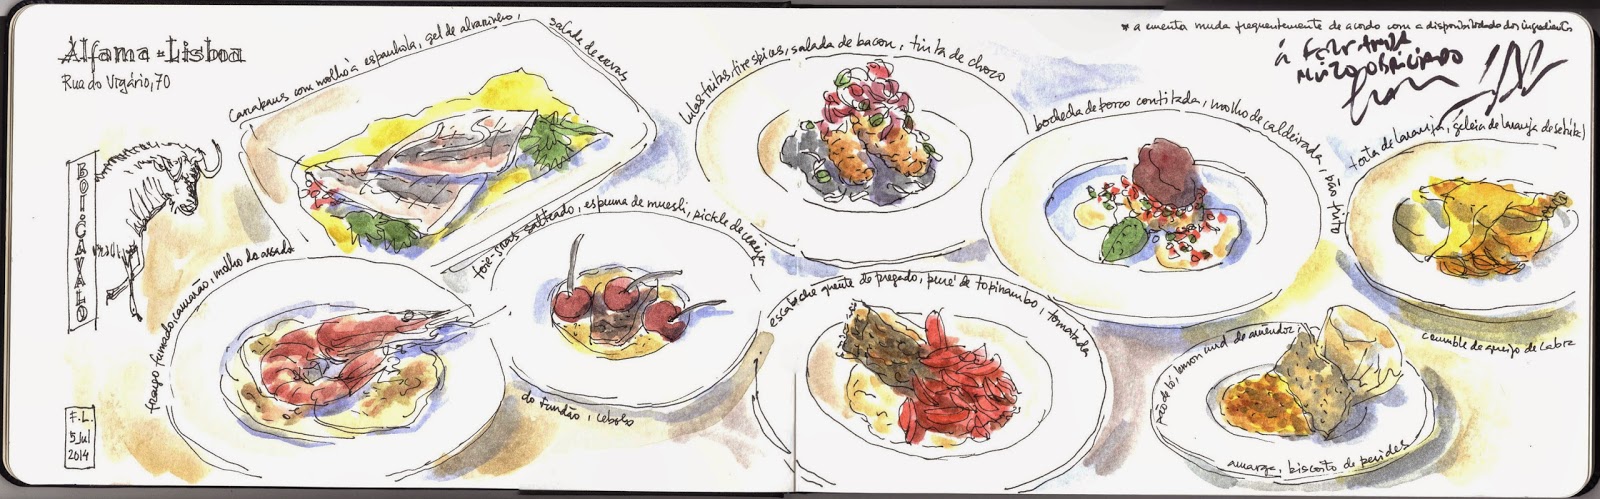 Alfama - Lisboa
Rua do Vigário, 70
BOI-CAVALO
F.L.
5 Jul
2014
Carapaus com molho à espanhola, gel de alvarinho,
salada de ervas
frango fumado, camarão, molho do assado
foie-gras salteado, espuma de muesli, pickle de cereja
do fundão, cebola
lulas fritas, tire espicas, salada de bacon, tinta de choco
escabeche quente de pregado, puré de topinambo, tomatada
bochecha de porco confitada, molho de caldeirada, pão frito
torta de laranja, geleia de laranja de setúbal
crumble de queijo de cabra
pão de ló, lemon curd de amendoa
amarga, biscoito de pevides
* a ementa muda frequentemente de acordo com a disponibilidade dos ingredientes
MUITO OBRIGADO